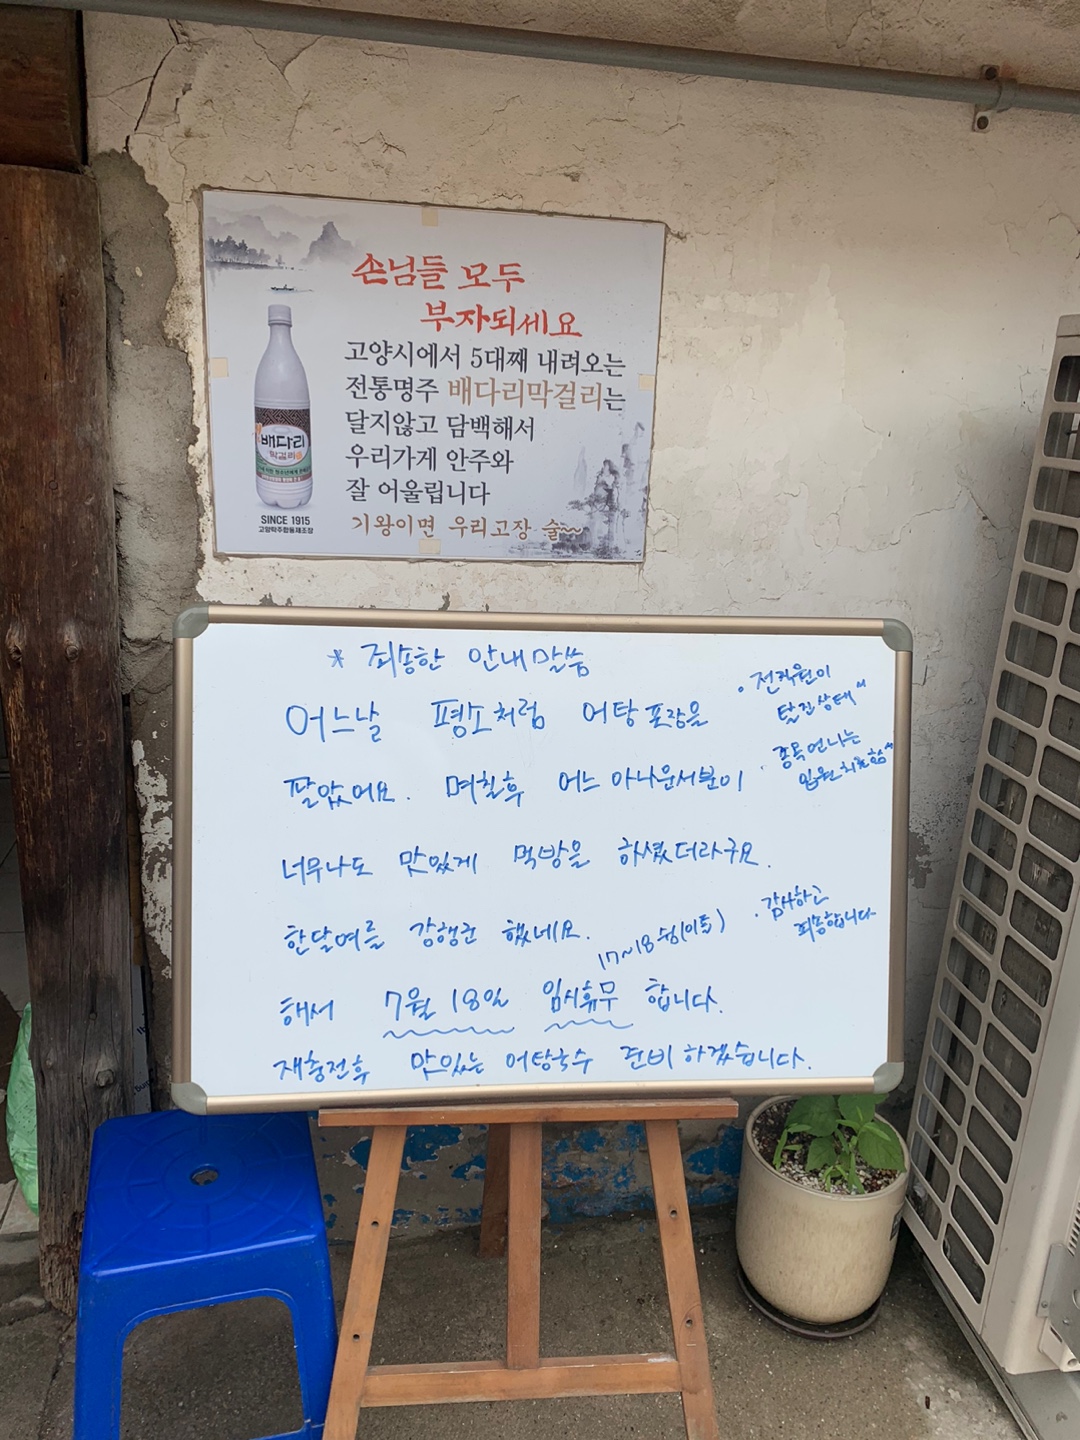 손님들 모두
부자되세요
고양시에서 5대째 내려오는
전통명주 배다리막걸리는
달지않고 담백해서
우리가게 안주와
잘 어울립니다
기왕이면 우리고장 술~~
배다리
막걸리
SINCE 1915
고양탁주합동제조장
* 죄송한 안내말씀
어느날 평소처럼 어탕포장을
팔았어요. 며칠후 어느 아나운서분이
너무나도 맛있게 먹방을 하셨더라구요.
한달여를 강행군 했네요.
17~18 수,목(이틀)
해서 7월 18일 임시휴무 합니다.
재충전후 맛있는 어탕국수 준비하겠습니다.
· 전직원이
탈진상태~
· 종목언니는
입원치료함~
· 감사하고
죄송합니다